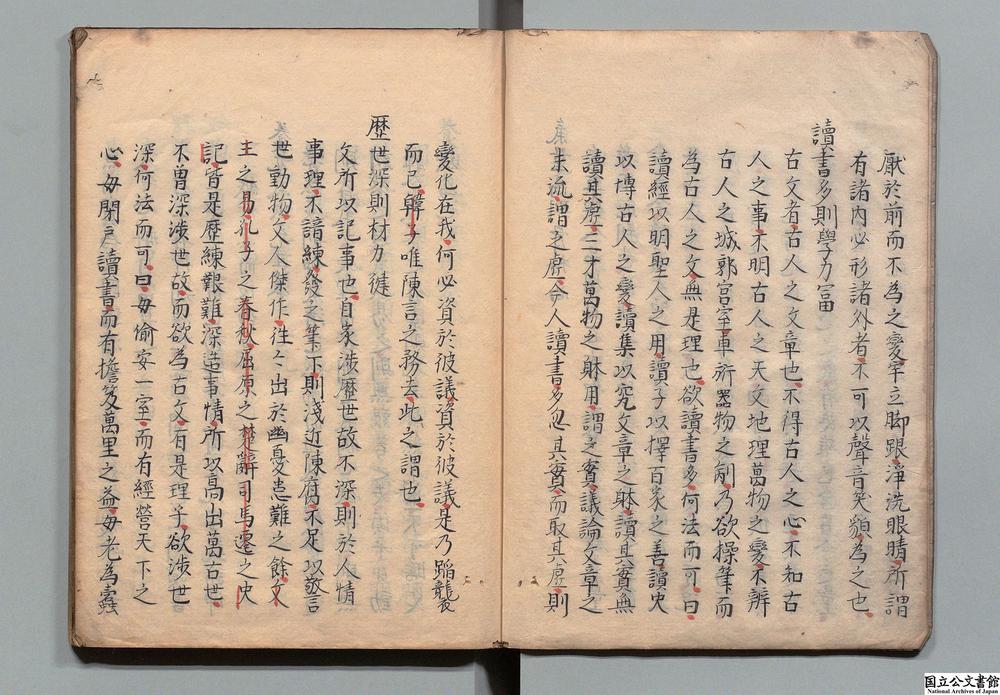 厭於前而不為之變宰立脚跟淨洗眼睛所謂
有諸内必形諸外者不可以聲音笑貌為之也
讀書多則學力富
古文者古人之文章也不得古人之心不知古
人之事不明古人之天文地理萬物之變不辨
古人之城郭宮室車所器物之制乃欲操筆而
為古人之文無是理也欲讀書多何法而可曰
讀經以明聖人之用讀子以擇百家之善讀史
以博古人之變讀集以究文章之躰讀其實無
讀其虚三才萬物之躰用謂之實議論文章之
末流謂之虚今人讀書多忽其實而取其虚則
變化在我何必資於彼議資於彼議是乃蹈襲
而已韓子唯陳言之務去此之謂也
歴世深則材力健
文所以記事也自家涉歷世故不深則於人情
事理不諳練發之筆下則淺近陳腐不足以驚
世動物文人傑作往々出於幽憂患難之餘文
王之易孔子之春秋屈原之楚辭司馬遷之史
記皆是歷練艱難深造事情所以高出萬古世
不曽深涉世故而欲為古文有是理乎欲涉世
深何法而可曰毋偷安一室而有經營天下之
心毋閉戸讀書而有擔簦萬里之益毋老為蠹
国立公文書館
National Archives of Japan